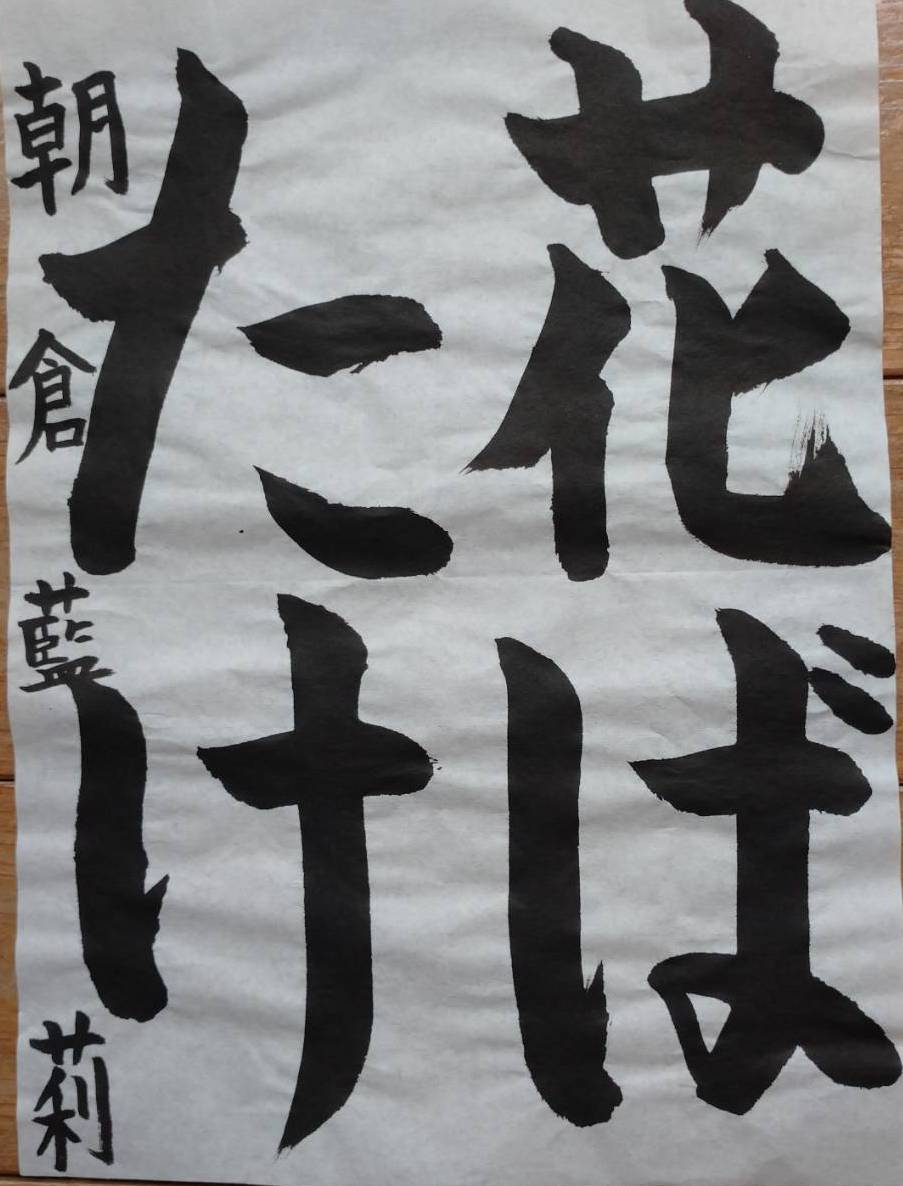 花ば
たけ
朝倉藍莉